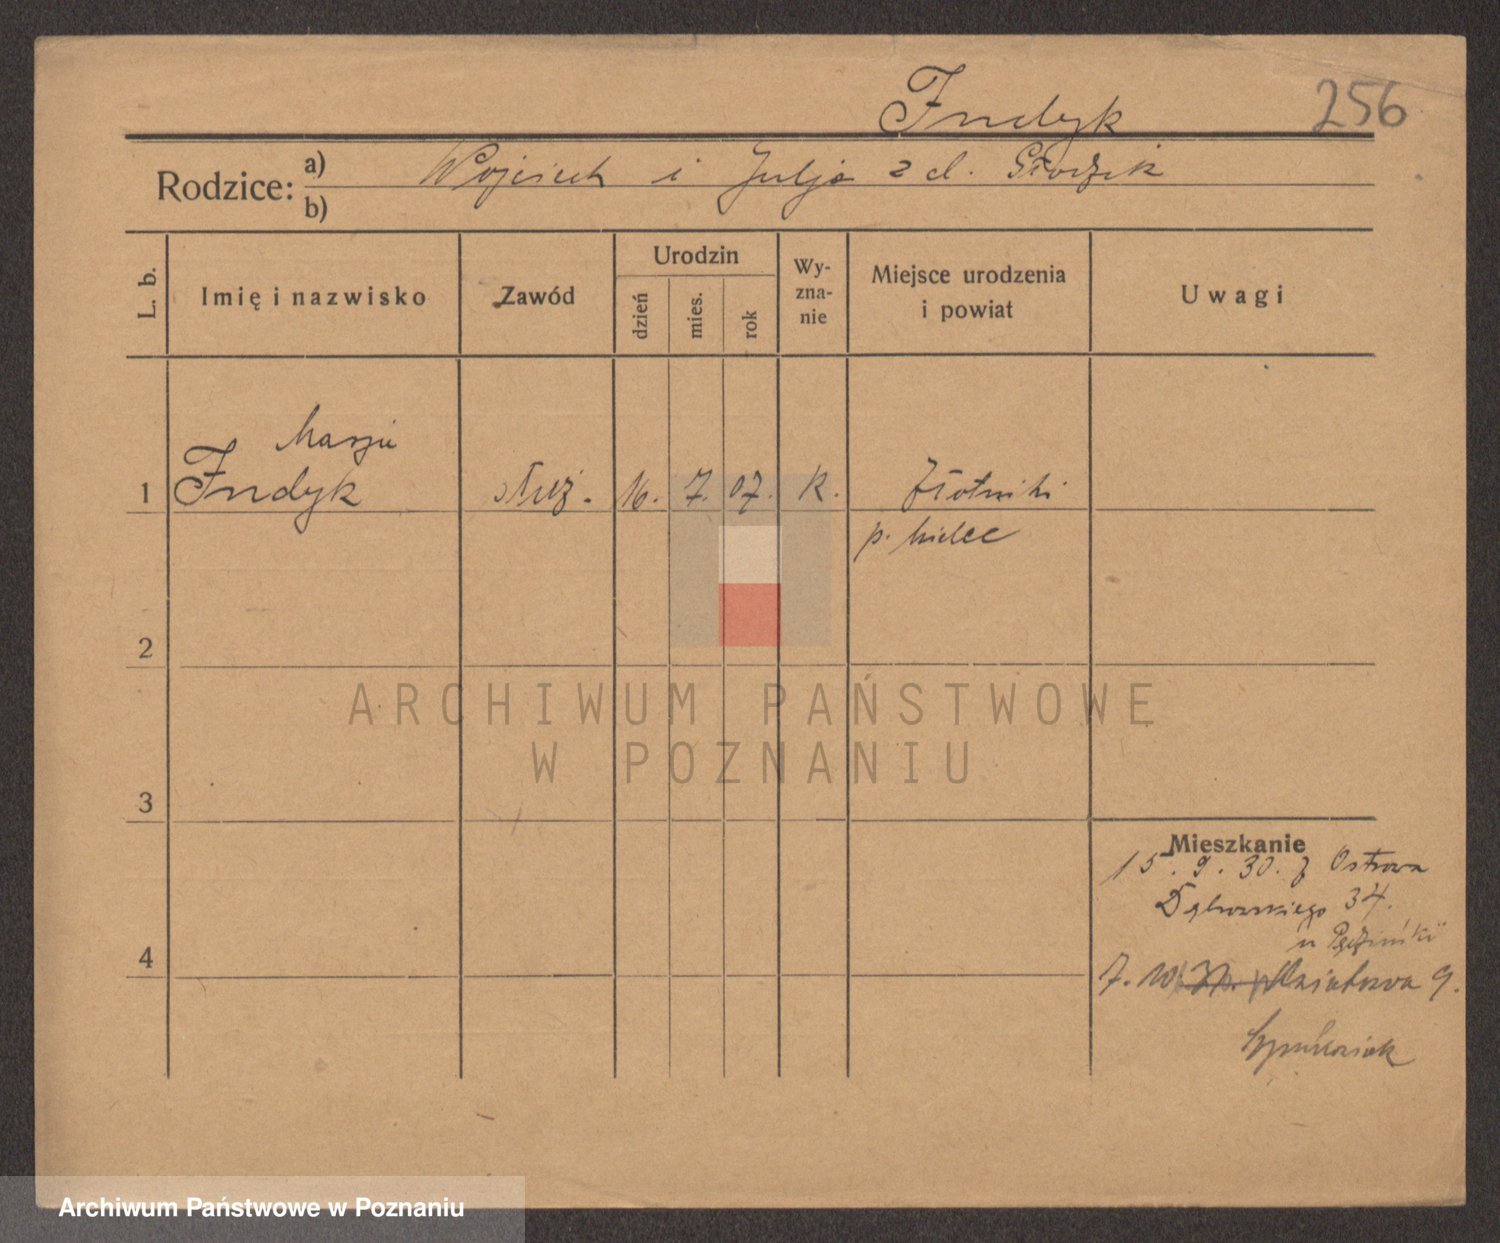 Indyk
256
Rodzice:
a) Wojciech i Julja z d. Głodzik
b)
L. b.
Imię i nazwisko
Zawód
Urodzin
dzień
mies.
rok
Wy-
zna-
nie
Miejsce urodzenia
i powiat
Uwagi
Marja
1 Indyk służ. 16. 7. 07. K. Złotniki
p. Mielec
2
ARCHIWUM PAŃSTWOWE
W POZNANIU
3
Mieszkanie
15. 9. 30. z Ostrowa
Dąbrowskiego 34.
4
7. 10
9.
Archiwum Państwowe w Poznaniu